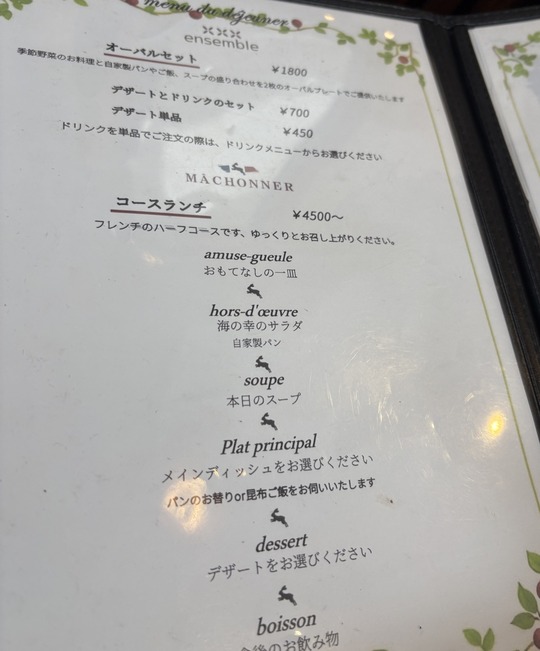 menu du déjeuner
ensemble
オーバルセット ¥1800
季節野菜のお料理と自家製パンやご飯、スープの盛り合わせを2枚のオーバルプレートでご提供いたします
デザートとドリンクのセット ¥700
デザート単品 ¥450
ドリンクを単品でご注文の際は、ドリンクメニューからお選びください
MÂCHONNER
コースランチ ¥4500〜
フレンチのハーフコースです、ゆっくりとお召し上がりください。
amuse-gueule
おもてなしの一皿
hors-d'œuvre
海の幸のサラダ
自家製パン
soupe
本日のスープ
Plat principal
メインディッシュをお選びください
パンのお替りor昆布ご飯をお伺いいたします
dessert
デザートをお選びください
boisson
食後のお飲み物